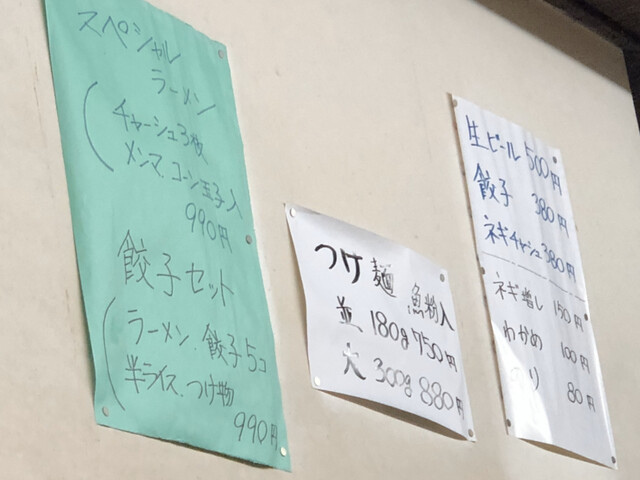 スペシャル
ラーメン
(チャーシュ3枚
メンマ、コーン玉子入
990円
餃子セット
(ラーメン、餃子5コ
半ライス、つけ物
990円
つけ麺 魚粉入
並 180g 750円
大 300g 880円
生ビール 500円
餃子 380円
ネギチャーシュ 380円
ネギ増し 150円
わかめ 100円
のり 80円